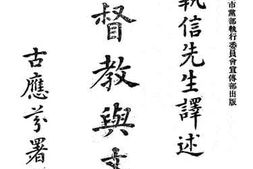 市黨部執行委員會宣傳部出版
執信先生譯述
督教與
古應芬署